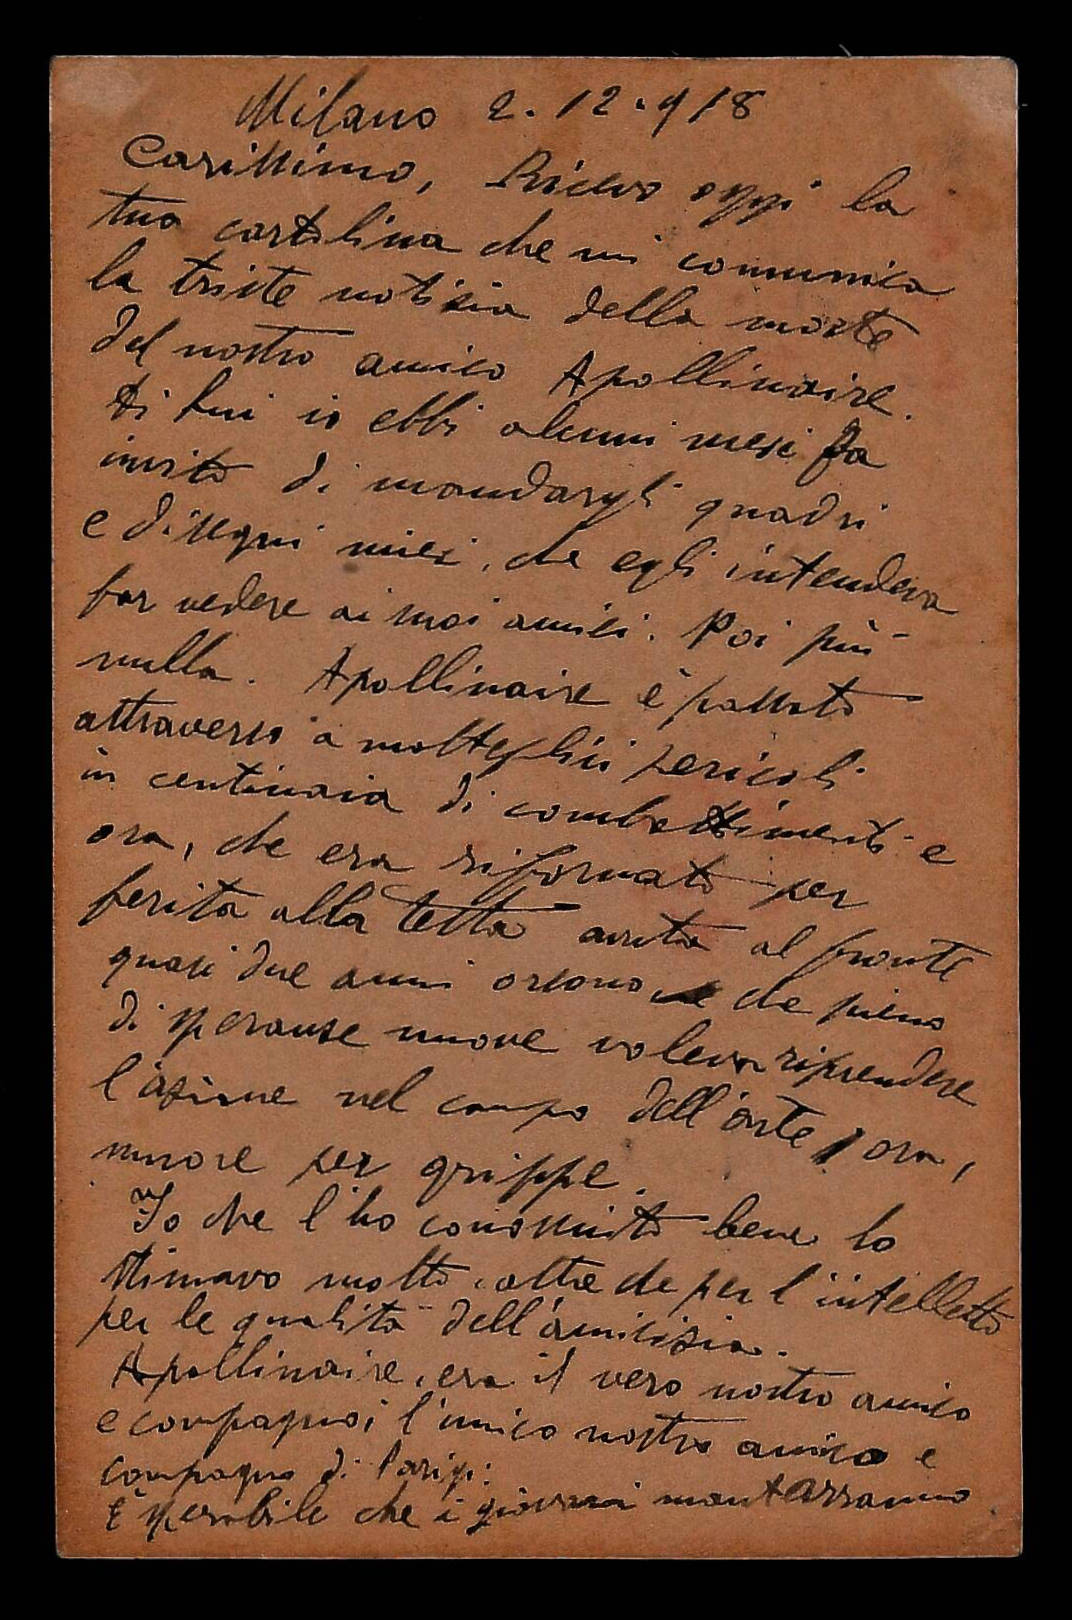 Milano 2.12.918
Carissimo, Ricevo oggi la
tua cartolina che mi comunica
la triste notizia della morte
del nostro amico Apollinaire.
Di lui io ebbi alcuni mesi fa
invito di mandargli quadri
e disegni miei, che egli intendeva
far vedere ai suoi amici. Poi più
nulla. Apollinaire è passato
attraverso a molteplici pericoli
in centinaia di combattimenti e
ora, che era riformato per
ferita alla testa avuta al fronte
quasi due anni orsono che pieno
di speranze nuove voleva riprendere
l'azione nel campo dell'arte, ora,
muore per grippe.
Io che l'ho conosciuto bene lo
stimavo molto, oltre che per l'intelletto
per le qualità dell'amicizia.
Apollinaire, era il vero nostro amico
e compagno; l'unico nostro amico e
compagno di Parigi.
È sperabile che i giovani